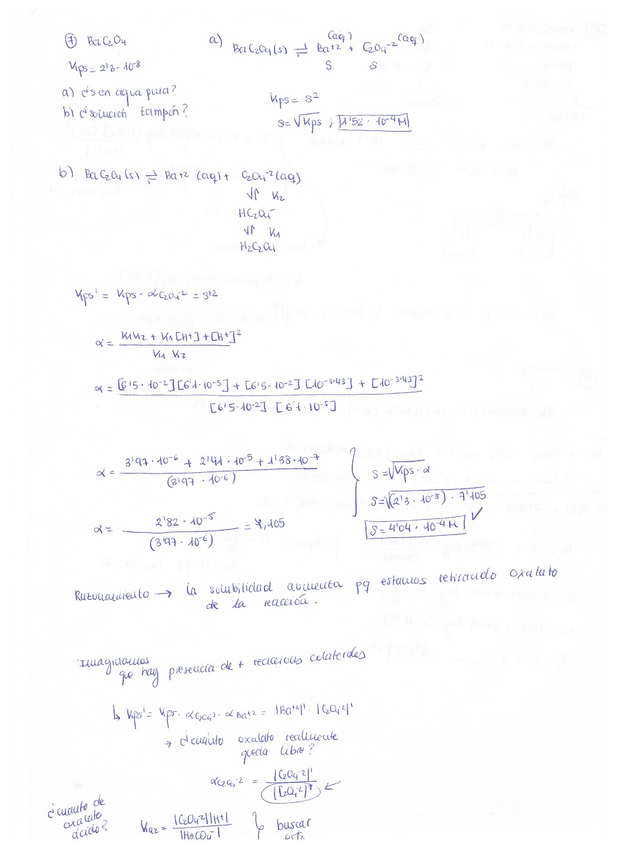 ⑦ BaC2O4
Kps = 2'3·10⁻⁸
a) ¿s en agua pura?
b) ¿solución tampón?
a) BaC2O4(s) ⇌ Ba⁺²(aq) + C2O4⁻²(aq)
S S
Kps = S²
S = √Kps ; 1'52·10⁻⁴M
b) BaC2O4(s) ⇌ Ba+2 (aq) + C2O4⁻²(aq)
⇅ K2
HC2O4⁻
⇅ K1
H2C2O4
Kps' = Kps · αC2O4⁻² = S+2
α = (K1K2 + K1[H+] + [H+]²) / (K1 K2)
α = ([6'5·10⁻²][6'1·10⁻⁵] + [6'5·10⁻²][10⁻³'⁴³] + [10⁻³'⁴³]²) / ([6'5·10⁻²] [6'1·10⁻⁵])
α = (3'97·10⁻⁶ + 2'41·10⁻⁵ + 1'38·10⁻⁷) / (3'97·10⁻⁶)
α = 2'82·10⁻⁵ / (3'97·10⁻⁶) = 7,105
S = √Kps·α
S = √(2'3·10⁻⁸)·7'105
S = 4'04·10⁻⁴M ✓
Razonamiento → la solubilidad aumenta pq estamos retirando oxalato
de la reacción.
Imaginamos
que hay presencia de + reacciones colaterales
↳ Kps' = Kps · αC2O4⁻² · αBa+2 = |Ba+2|' · |C2O4⁻²|'
→ ¿cuánto oxalato realmente
queda libre?
αC2O4⁻² = |C2O4⁻²|' / |C2O4⁻²|
¿cuánto de
oxalato
ácido?
Ka2 = |C2O4⁻²||H+| /
buscar